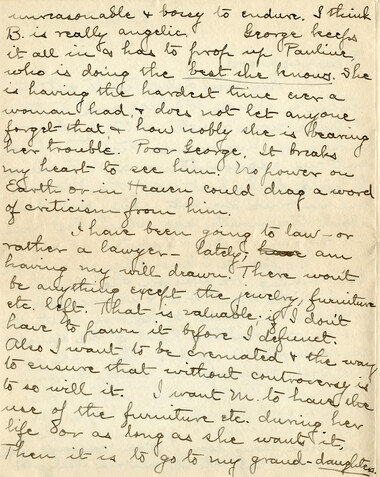 unreasonable & bossy to endure. I think
B. is really angelic George keeps
it all in & has to prop up Pauline
who is doing the best she knows. She
is having the hardest time ever a
woman had, & does not let anyone
forget that, & how nobly she is bearing
her trouble. Poor George. It breaks
my heart to see him. No power on
Earth or in Heaven could drag a word
of criticism from him.
I have been going to law – or
rather a lawyer – lately, am
having my will drawn. There won't
be anything except the jewelry, furniture
etc. left. That is valuable, if I don't
have to pawn it before I defunct.
Also I want to be cremated & the way
to ensure that without controversy is
to so will it. I want M. to have the
use of the furniture etc. during her
life & or as long as she wants it,
Then it is to go to my grand-daughters.